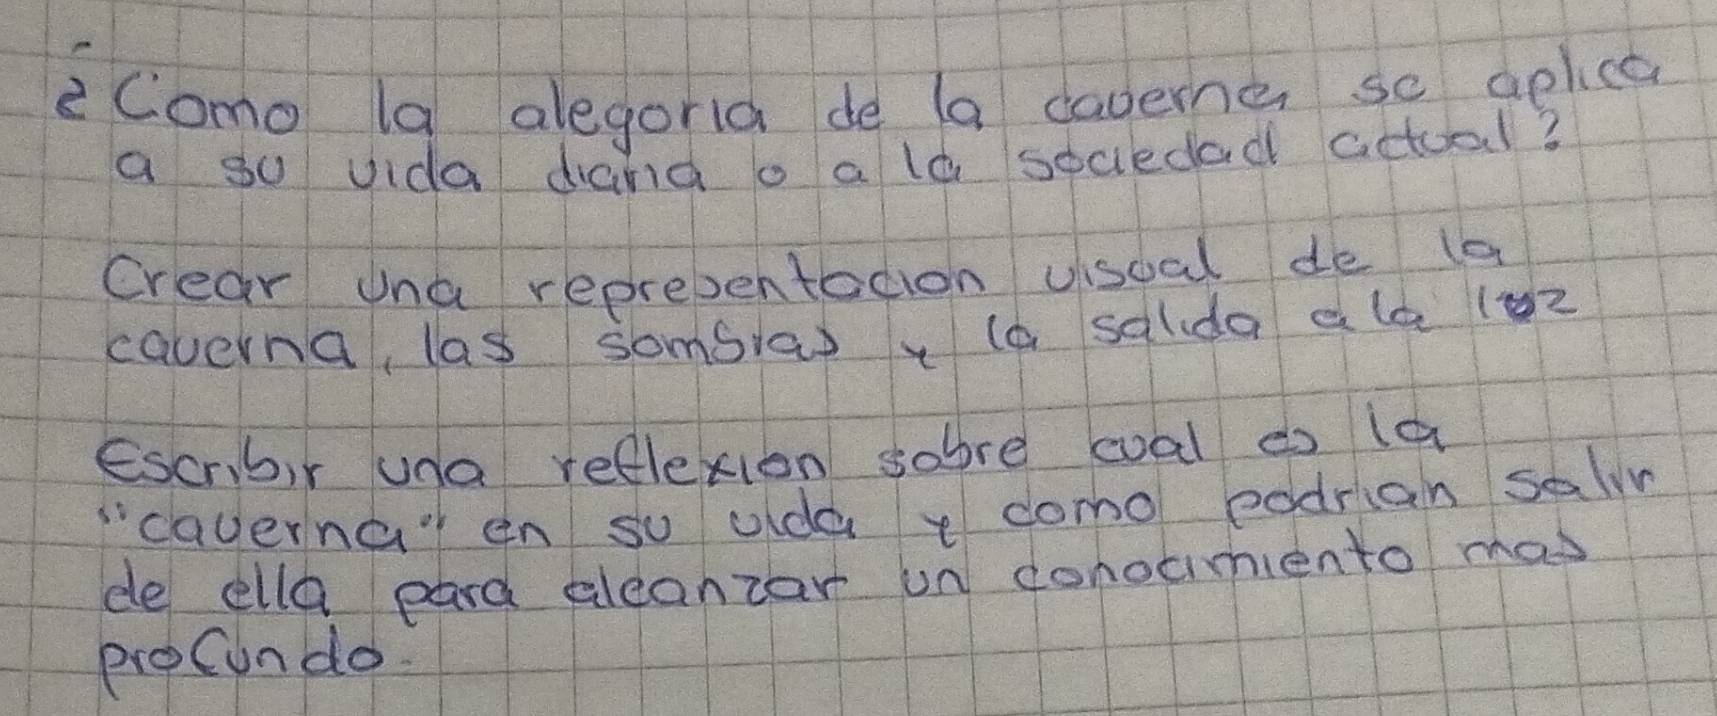 ¿Como la alegoria de la caverna se aplica
a su vida diaria o a la sociedad actual?
Crear una representacion visual de la
caverna, las sombras y la salida a la luz
Escribir una reflexion sobre cual es la
"caverna" en su vida y como podrian salir
de ella para alcanzar un conocimiento mas
profundo.